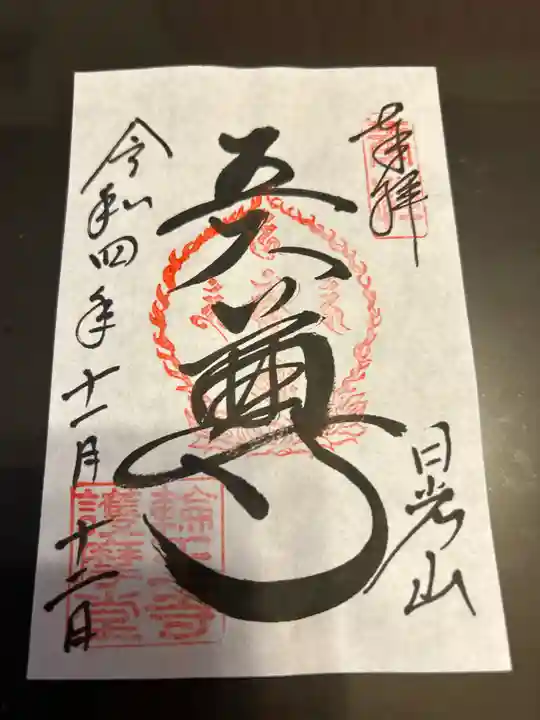 奉拝
日光山
五大尊
令和四年十一月十二日
輪王寺
護摩堂